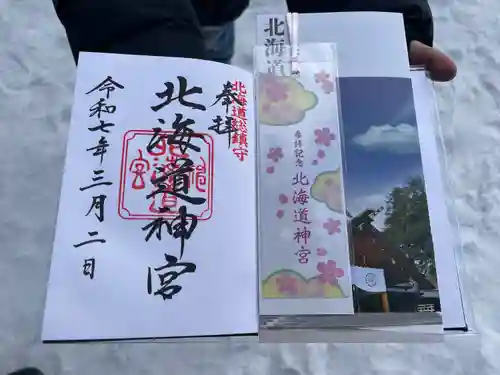 奉拝
北海道総鎮守
北海道神宮
令和七年三月二日
北海道
参拝記念
北海道神宮